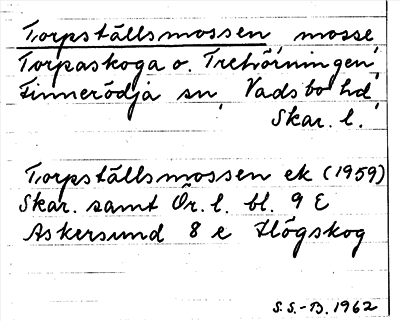 Torpställsmossen mosse,
Torpaskoga o. Tretvörningen,
Finnerödja sn, Vadsbo hd,
Skar. l.
Torpställsmossen ek (1959)
Skar. samt Ör. l. bl. 9 E
Askersund 8 e Högskog
S.S.-B. 1962